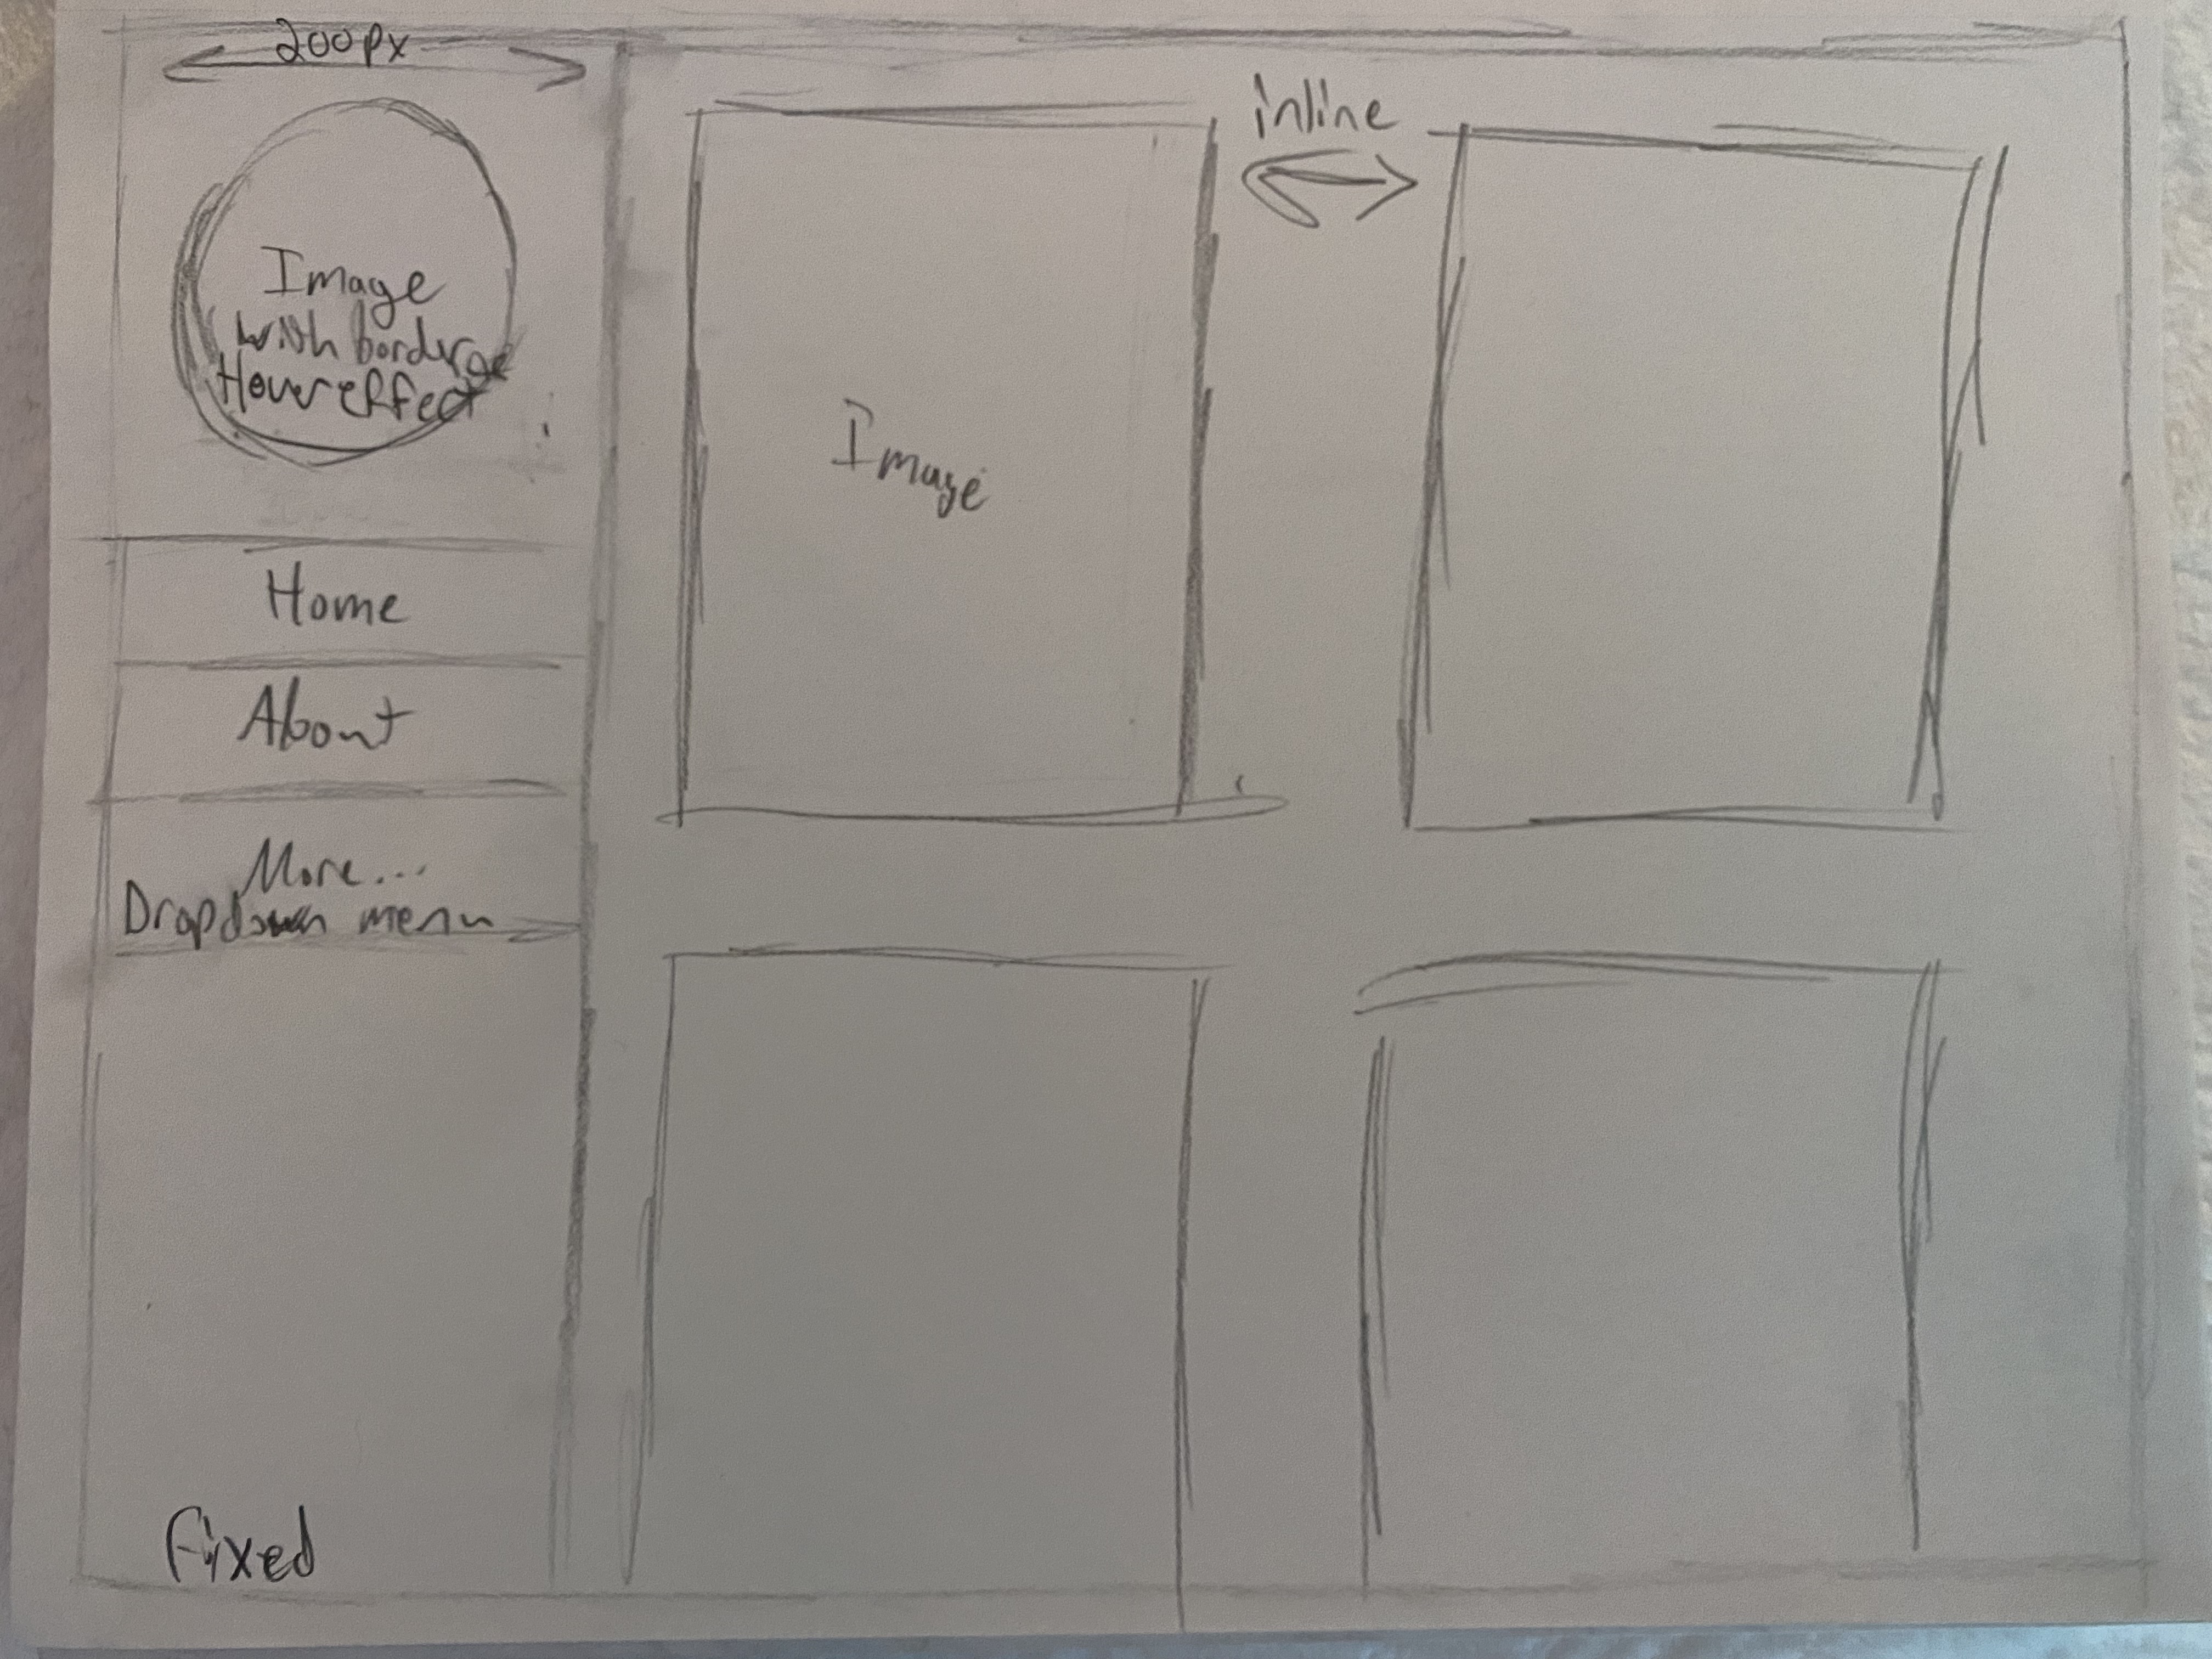 200px
Image
with border
Hover effect
Home
About
More...
Dropdown menu
Fixed
inline
Image